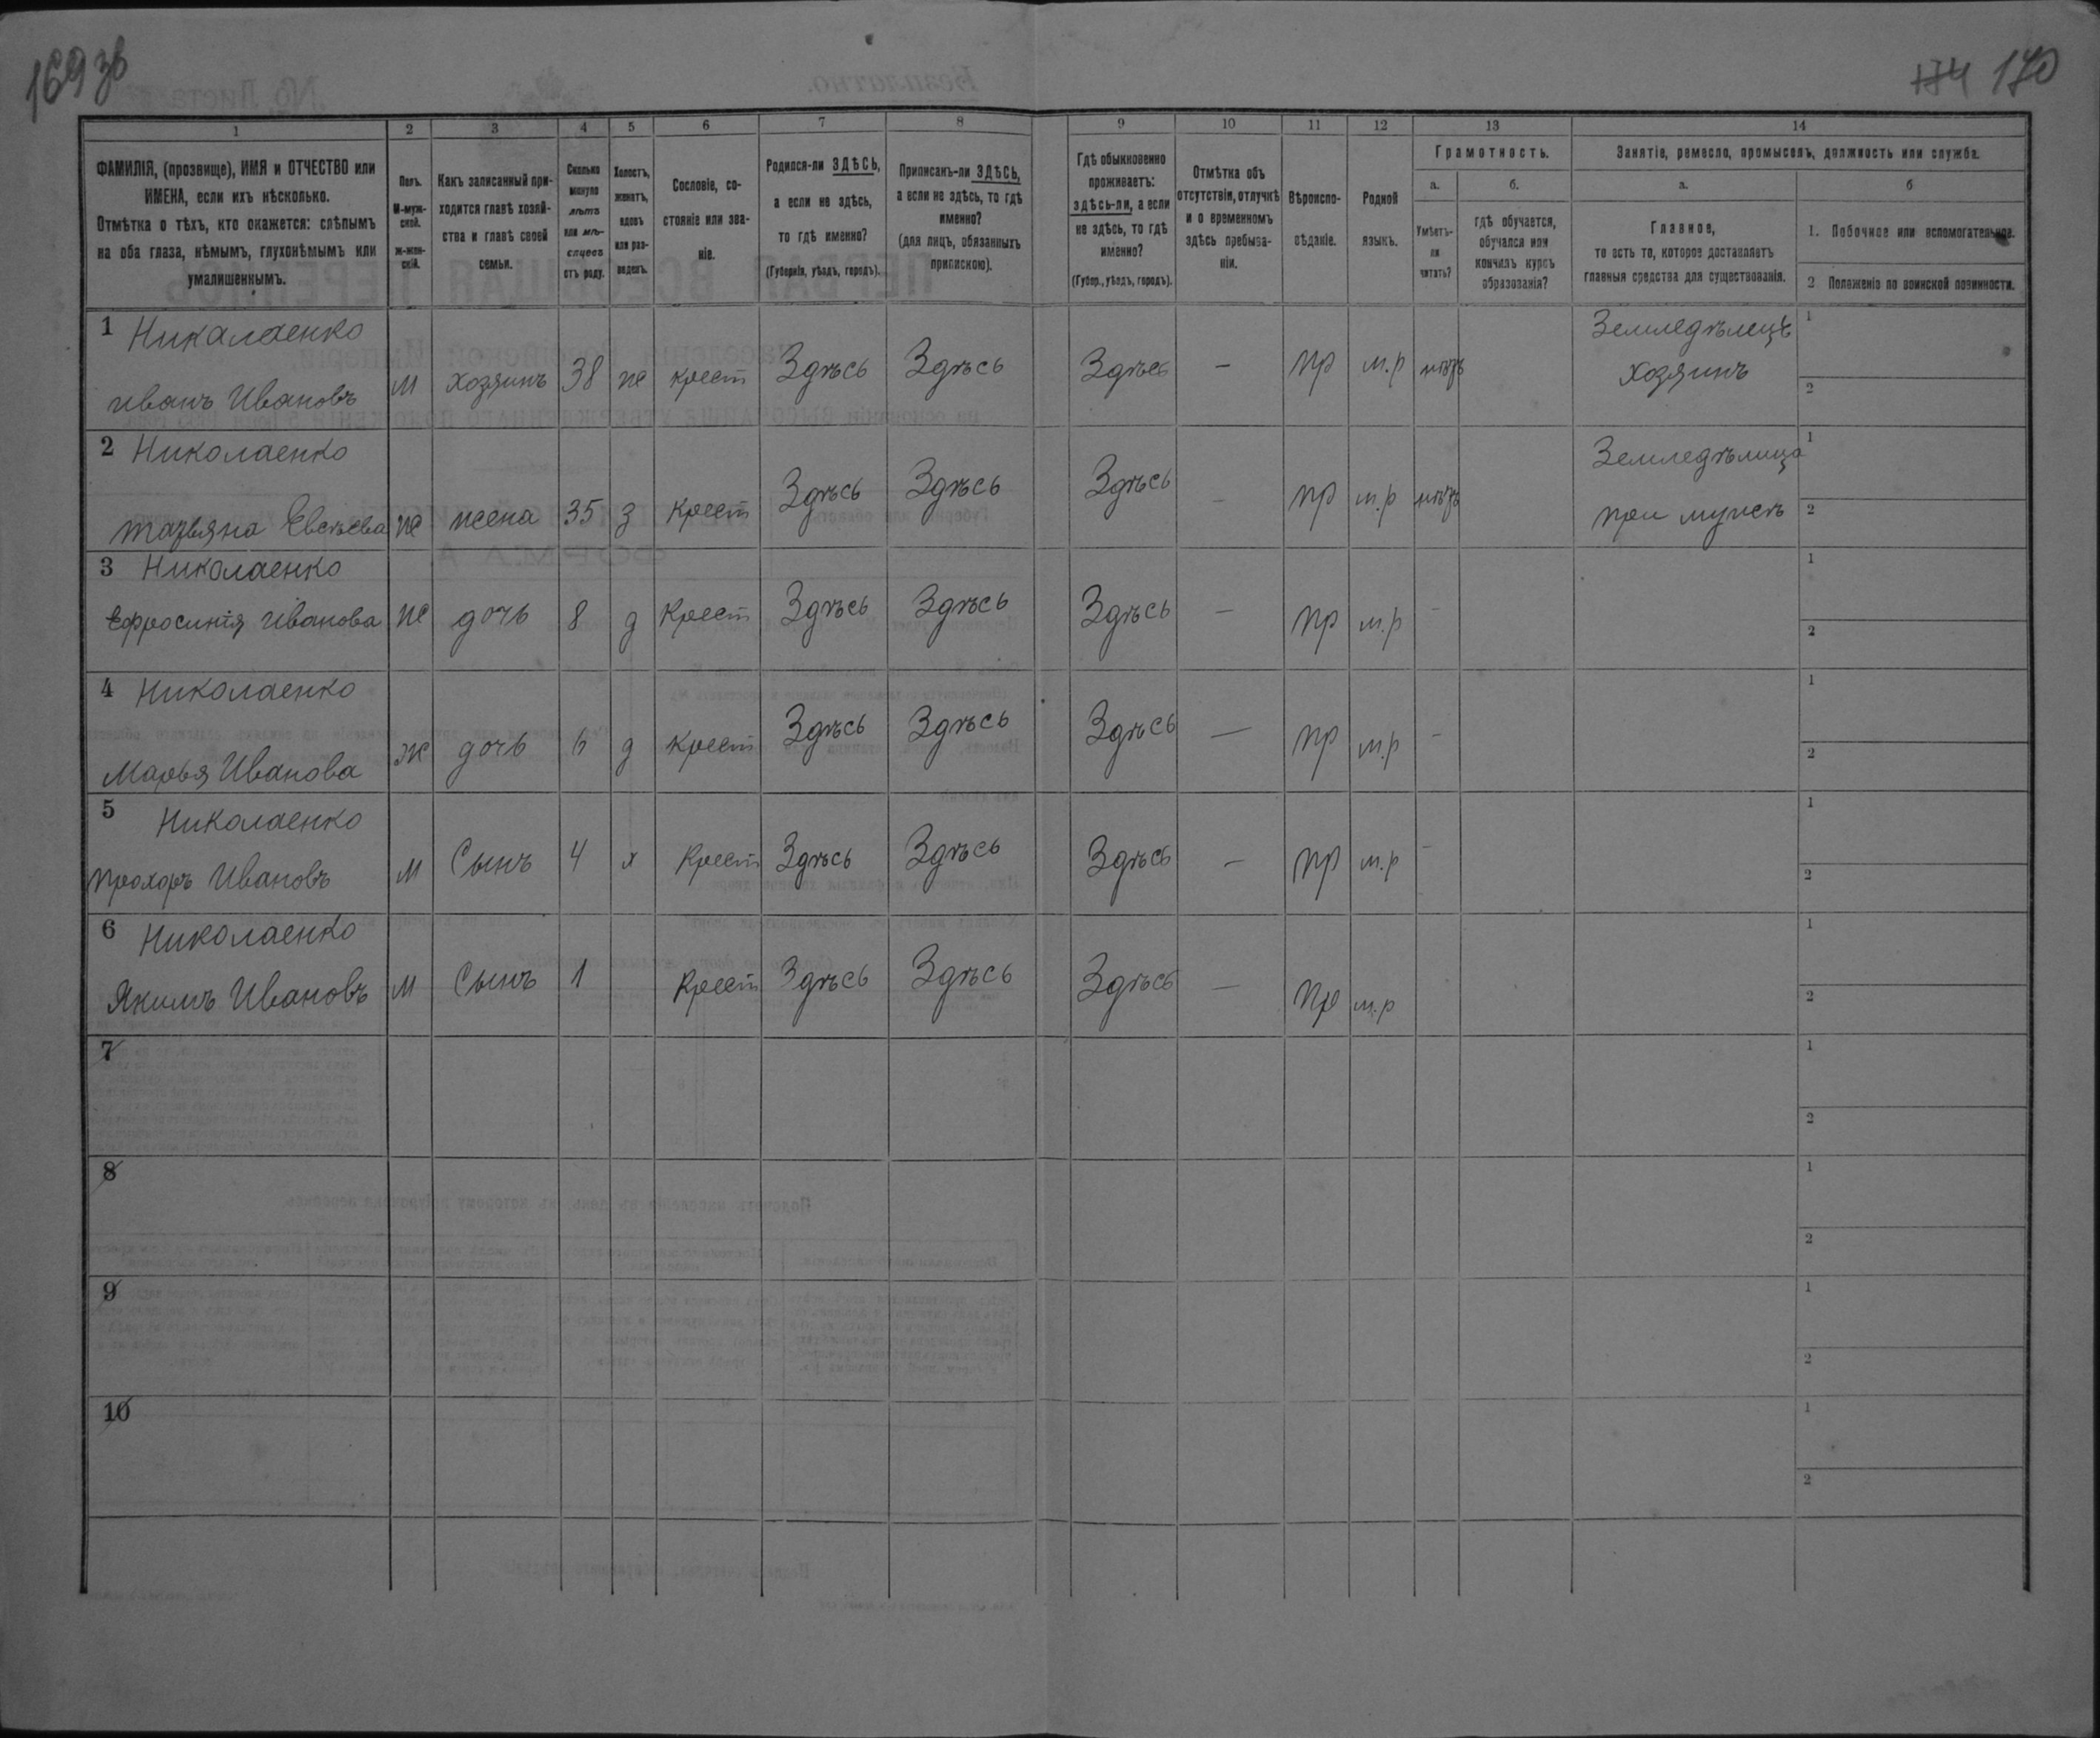 169 зв
174 170
1 2 3 4 5 6 7 8 9 10 11 12 13 14
ФАМИЛІЯ, (прозвище), ИМЯ и ОТЧЕСТВО или
ИМЕНА, если ихъ нѣсколько.
Отмѣтка о тѣхъ, кто окажется: слѣпымъ
на оба глаза, нѣмымъ, глухонѣмымъ или
умалишеннымъ.
Полъ.
М-муж-
ской.
ж-жен-
скій.
Какъ записанный при-
ходится главѣ хозяй-
ства и главѣ своей
семьи.
Сколько
минуло
лѣтъ
или мѣ-
сяцевъ
отъ роду.
Холостъ,
женатъ,
вдовъ
или раз-
веденъ.
Сословіе, со-
стояніе или зва-
ніе.
Родился-ли ЗДѢСЬ,
а если не здѣсь,
то гдѣ именно?
(Губернія, уѣздъ, городъ).
Приписанъ-ли ЗДѢСЬ,
а если не здѣсь, то гдѣ
именно?
(для лицъ, обязанныхъ
припискою).
Гдѣ обыкновенно
проживаетъ:
здѣсь-ли, а если
не здѣсь, то гдѣ
именно?
(Губер., уѣздъ, городъ).
Отмѣтка объ
отсутствіи, отлучкѣ
и о временномъ
здѣсь пребыва-
ніи.
Вѣроиспо-
вѣданіе.
Родной
языкъ.
Грамотность.
а.
Умѣетъ-
ли
читать?
б.
гдѣ обучается,
обучался или
кончилъ курсъ
образованія?
Занятіе, ремесло, промыселъ, должность или служба.
а.
Главное,
то есть то, которое доставляетъ
главныя средства для существованія.
б
1. Побочное или вспомогательное.
2 Положеніе по воинской повинности.
1 Николаенко
Иванъ Ивановъ М хозяинъ 38 ж крест Здѣсь Здѣсь Здѣсь — пр м.р нѣтъ Земледѣлецъ
хозяинъ 1
2
2 Николаенко
Татьяна Евсѣева ж жена 35 з крест Здѣсь Здѣсь Здѣсь — пр м.р нѣтъ Земледѣлица
при мужѣ 1
2
3 Николаенко
Ефросинія Иванова ж дочь 8 д крест Здѣсь Здѣсь Здѣсь — пр м.р — 1
2
4 Николаенко
Марья Иванова ж дочь 6 д крест Здѣсь Здѣсь Здѣсь — пр м.р — 1
2
5 Николаенко
Прохоръ Ивановъ М Сынъ 4 х Крест Здѣсь Здѣсь Здѣсь — пр м.р — 1
2
6 Николаенко
Якимъ Ивановъ М Сынъ 1 Крест Здѣсь Здѣсь Здѣсь — пр м.р 1
2
7 1
2
8 1
2
9 1
2
10 1
2